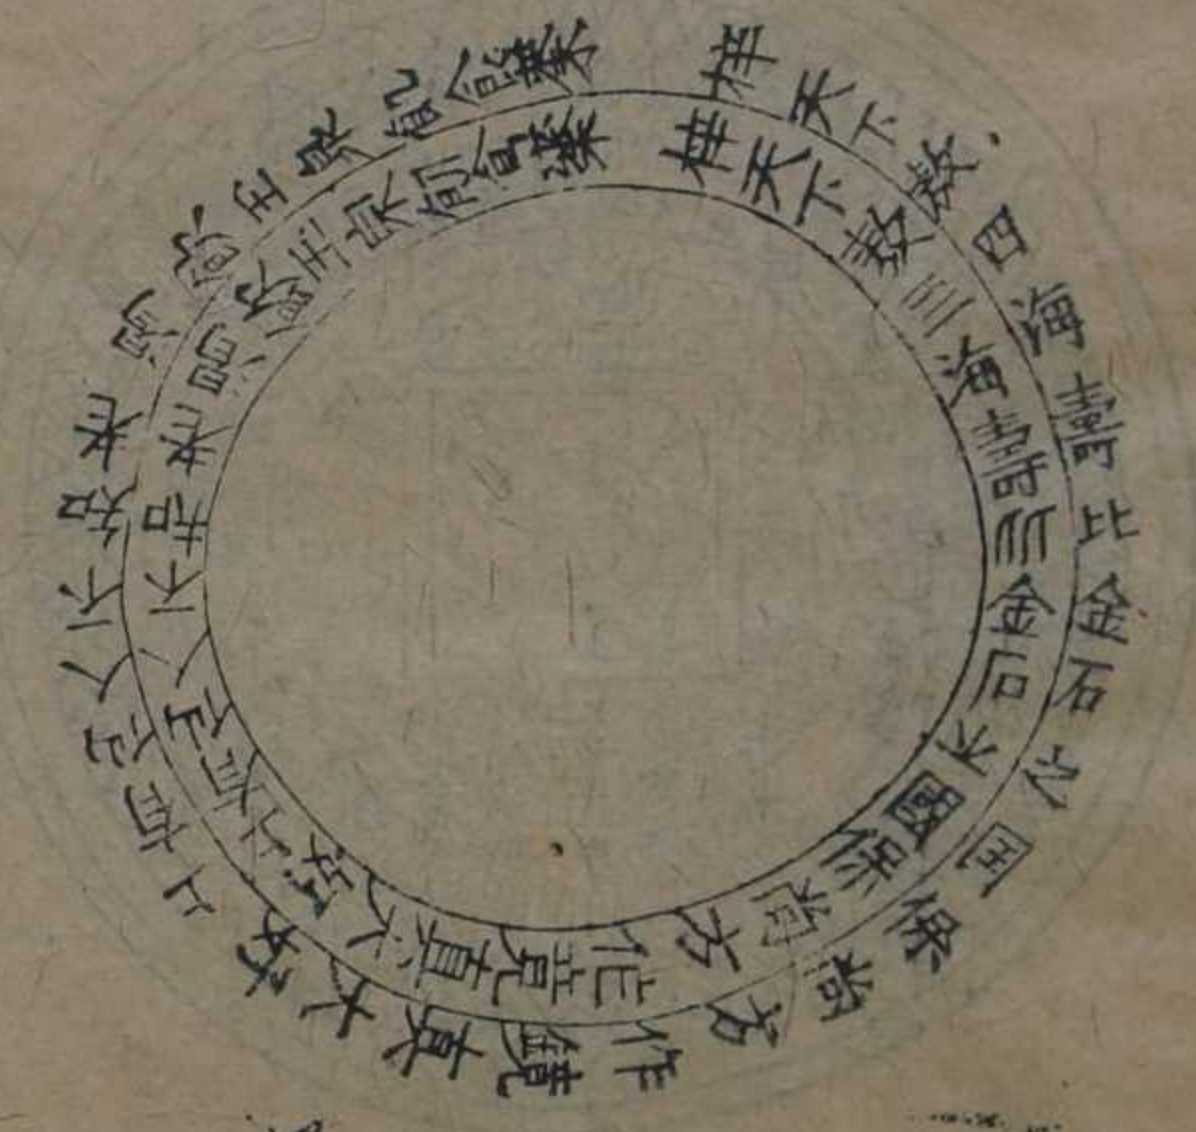 尚方作鏡真大好上有仙人不知老渴飲玉泉飢食棗天下敖四海壽比金石之国保
尚方作竟真大好上有仙人不知老渴飲玉泉飢食棗天下敖三海壽金石之國保